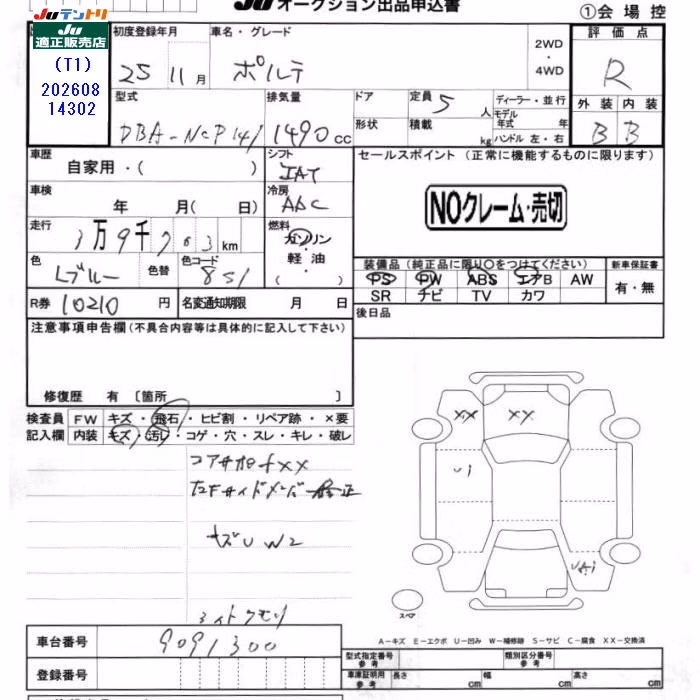 Juテントリ
Ju オークション出品申込書 ①会場控
Ju
適正販売店
(T1)
202608
14302
初度登録年月 車名・グレード 評価点
25 11月 ポルテ 2WD・4WD R
型式 排気量 ドア 定員 5人 ディーラー・並行 外装 内装
DBA-NCP141 1490cc 形状 積載 kg モデル年式 年 ハンドル 左・右 B B
車歴 シフト セールスポイント(正常に機能するものに限ります)
自家用・( ) IAT
車検 冷房
年 月( 日) AAC NOクレーム・売切
走行 燃料
3万9千763km ガソリン・軽油・( )
装備品(純正品に限り○をつけてください) 新車保証書
色 色替 色コード PS PW ABS エアB AW 有・無
Lブルー 8S1 SR ナビ TV カワ
R券 10210円 名変通知期限 月 日 後日品
注意事項申告欄(不具合内容等は具体的に記入して下さい)
修復歴 有〔箇所 〕
検査員 FW キズ・飛石・ヒビ割・リペア跡・×要
記入欄 内装 キズ・汚レ・コゲ・穴・スレ・キレ・破レ
XX XX
コアサポートXX
Ui
キズU W2
UAi
スペア
A-キズ E-エクボ U-凹み W-補修跡 S-サビ C-腐食 XX-交換済
車台番号 9091300
型式指定番号 参考 類別区分番号 参考
登録番号 車庫証明用 参考 長さ cm 幅 cm 高さ cm